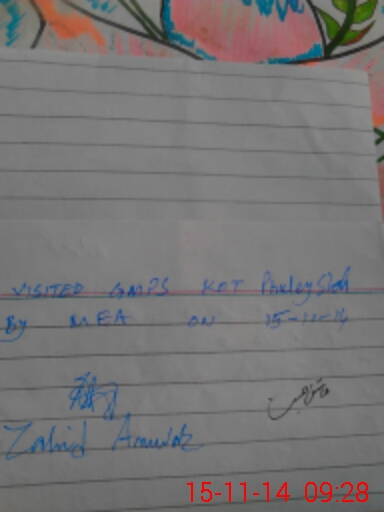 VISITED GMPS KOT
By MEA ON 15-11-14
Zahid
15-11-14 09:28